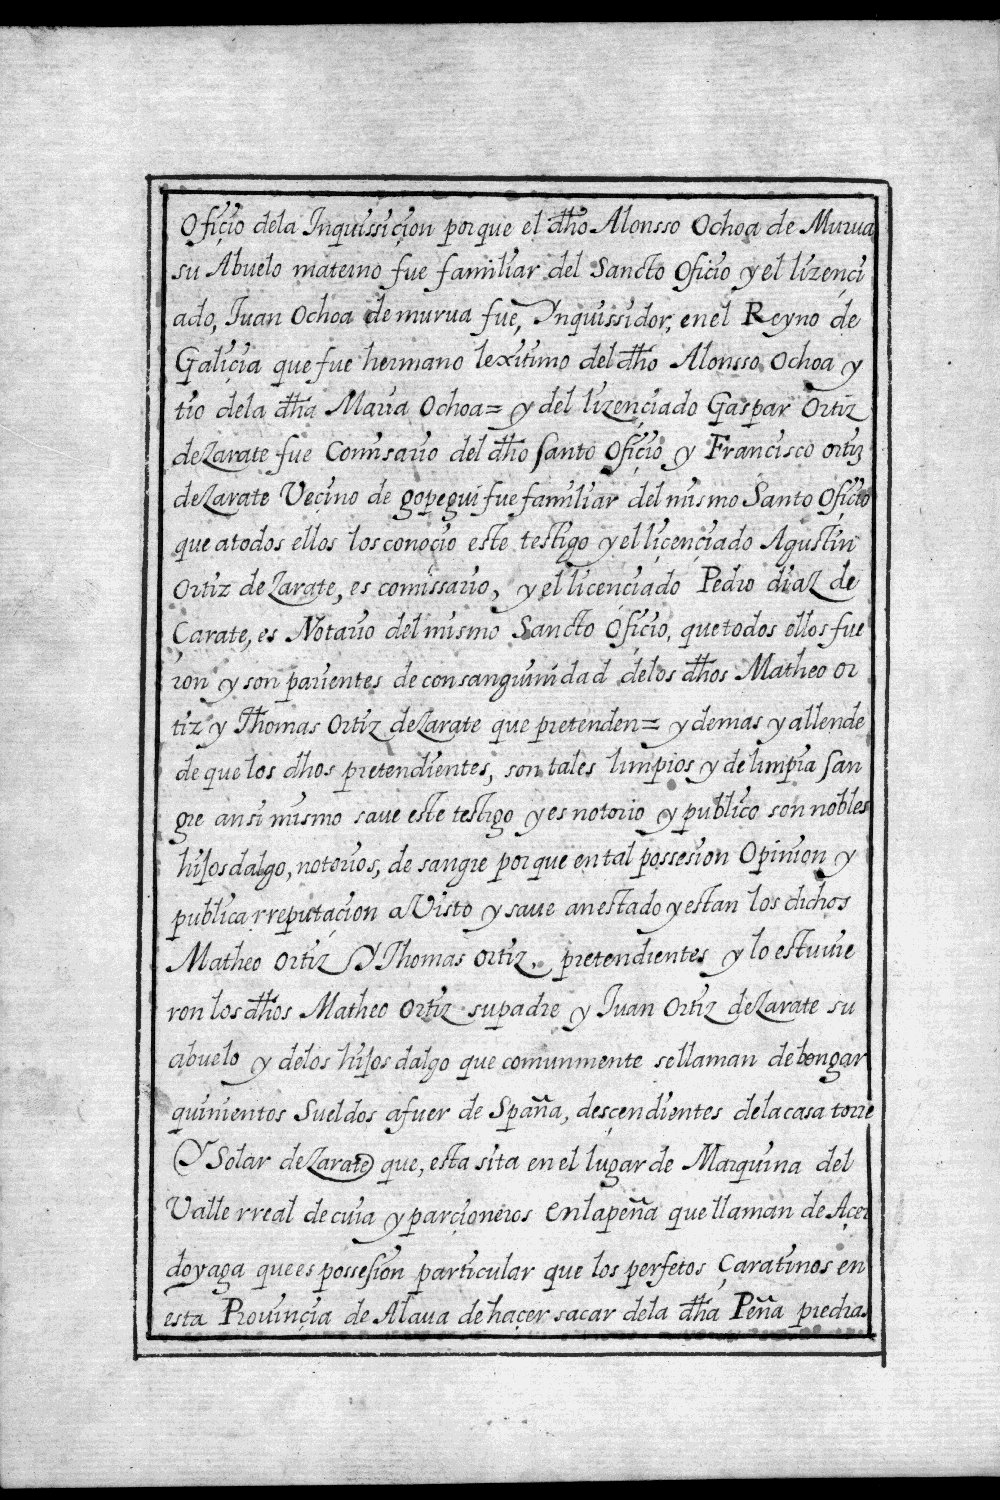 Ofiçio dela Inquissiçion porque el dho Alonsso Ochoa de Murua
su Abuelo materno fue familiar del Sancto Oficio y el lizençi
ado, Iuan Ochoa de murua fue, Ynquissidor, enel Reyno de
Galiçia que fue hermano lexitimo del dho Alonsso Ochoa y
tio dela dha Maria Ochoa= y del lizençiado Gaspar Ortiz
de Zarate fue Comisario del dho santo Ofiçio y Francisco ortiz
de Zarate Veçino de gopegui fue familiar del mismo Santo Oficio
que atodos ellos los conoçio este testigo y el liçençiado Agustin
Ortiz de Zarate, es comissario, y el licenciado Pedro diaz de
Çarate, es Notario del mismo Sancto Ofiçio, que todos ellos fue
ron y son parientes de consanguinidad delos dhos Matheo Or
tiz y Thomas Ortiz de Zarate que pretenden= y demas y allende
de que los dhos pretendientes, son tales limpios y de limpia san
gre ansi mismo saue este testigo y es notorio y publico son nobles
hijosdalgo, notorios, de sangre porque en tal possesion Opinion y
publica rreputaçion a Visto y saue an estado y estan los dichos
Matheo Ortiz Y Thomas Ortiz, pretendientes y lo estuvie
ron los dhos Matheo Ortiz su padre y Iuan Ortiz de Zarate su
abuelo y delos hijos dalgo que comunmente se llaman de bengar
quinientos Sueldos a fuer de Spaña, desçendientes dela casa torre
Y Solar de Zarate que, esta sita en el lugar de Marquina del
Valle rreal de cuia y parçioneros en la peña que llaman de Açer
doyaga que es possesion particular que los perfetos Çaratinos en
esta Prouinçia de Alaua de haçer sacar dela dha Peña piedras